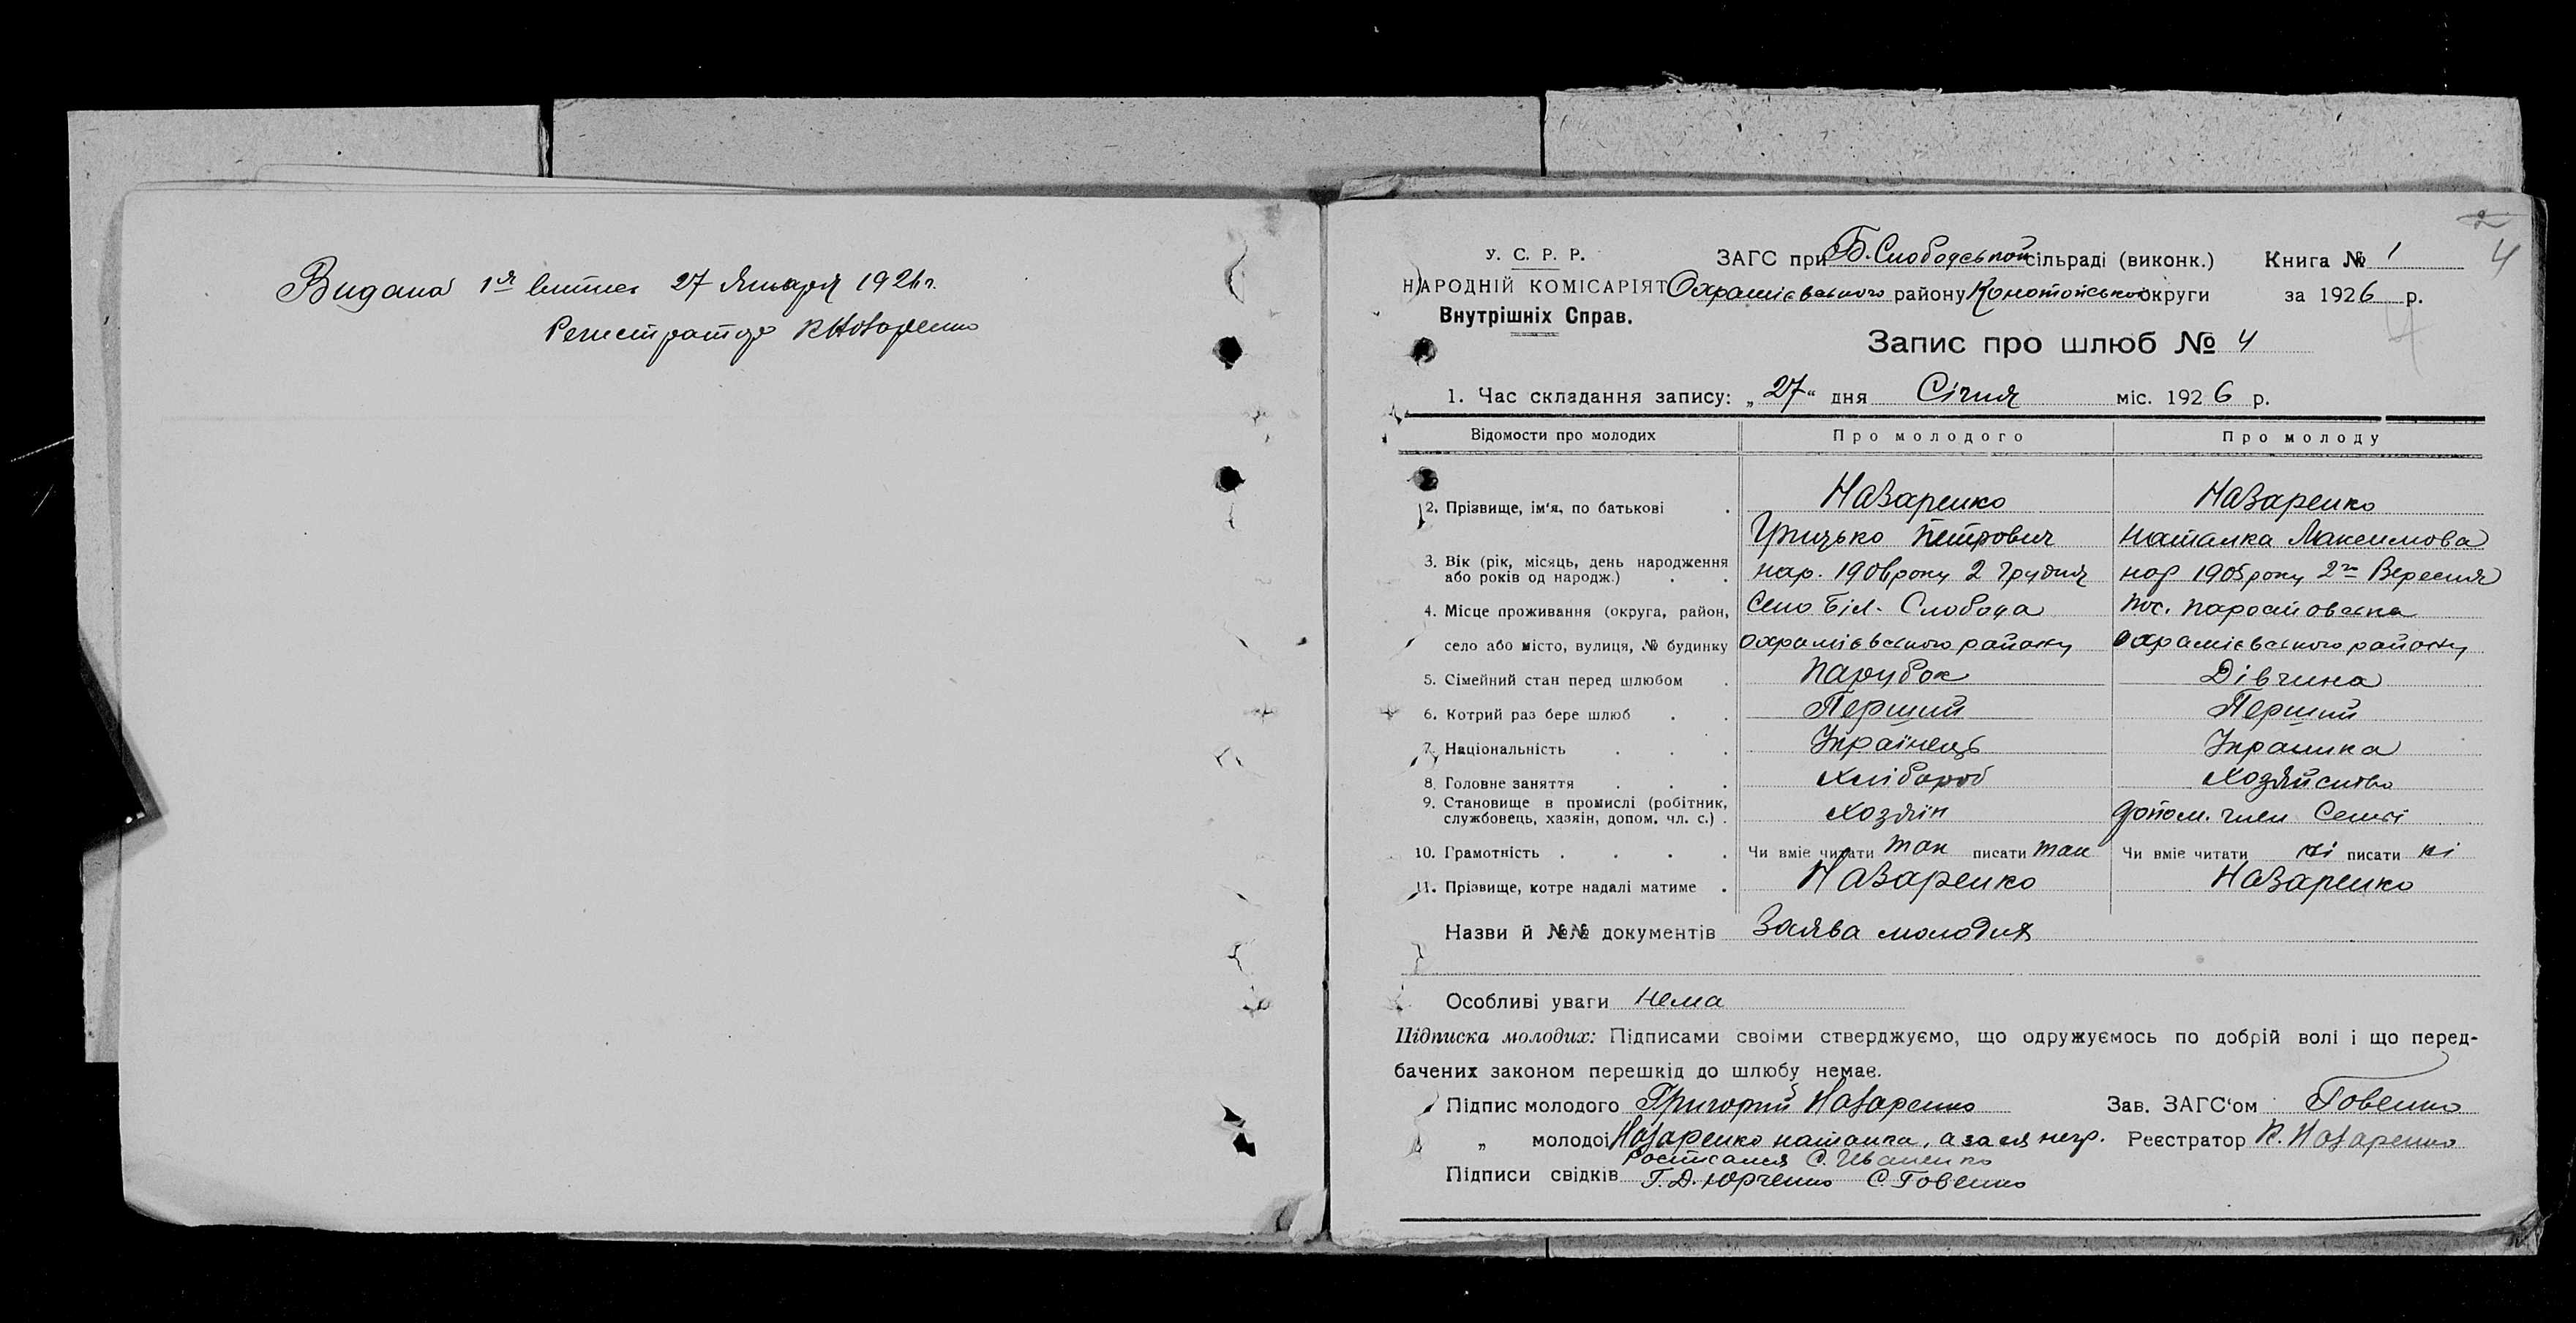 Видана 1я витись 27 Января 1926 г.
Регистратор К Назаренко
2
4
У. С. Р. Р.
НАРОДНІЙ КОМІСАРІЯТ
Внутрішніх Справ.
ЗАГС при Б. Слободській сільраді (виконк.) Книга № 1
Охраміївського району Конотопської округи за 1926 р.
Запис про шлюб № 4
1. Час складання запису: „27“ дня Січня міс. 1926 р.
Відомости про молодих Про молодого Про молоду
2. Прізвище, ім'я, по батькові . Назаренко Назаренко
Грицько Петрович Наталка Максимова
3. Вік (рік, місяць, день народження
або років од народж.) . . нар. року 2 Грудня нар 1905 року 2го Вересня
4. Місце проживання (округа, район, Село Біл. Слобода
село або місто, вулиця, № будинку Охраміївського району Охраміївського району
5. Сімейний стан перед шлюбом . Парубок Дівчина
6. Котрий раз бере шлюб . . Перший Перший
7. Національність . . . Українець Украинка
8. Головне заняття . . . Хлібороб Хозяйство
9. Становище в промислі (робітник,
службовець, хазяін, допом. чл. с.) . Хозяін допом. член Семьі
10. Грамотність . . . . Чи вміє читати так писати так Чи вміє читати ні писати ні
11. Прізвище, котре надалі матиме . Назаренко Назаренко
Назви й №№ документів Заява молодих
Особливі уваги нема
Підписка молодих: Підписами своіми стверджуємо, що одружуємось по добрій волі і що перед-
бачених законом перешкід до шлюбу немає.
Підпис молодого Григорий Назаренко Зав. ЗАГС'ом Говенко
„ молодоі Назаренко Наталка, а за ея негр. Реєстратор К. Назаренко
Росписался С. Иваненко
Підписи свідків Г. Д. Юрченко С. Говенко